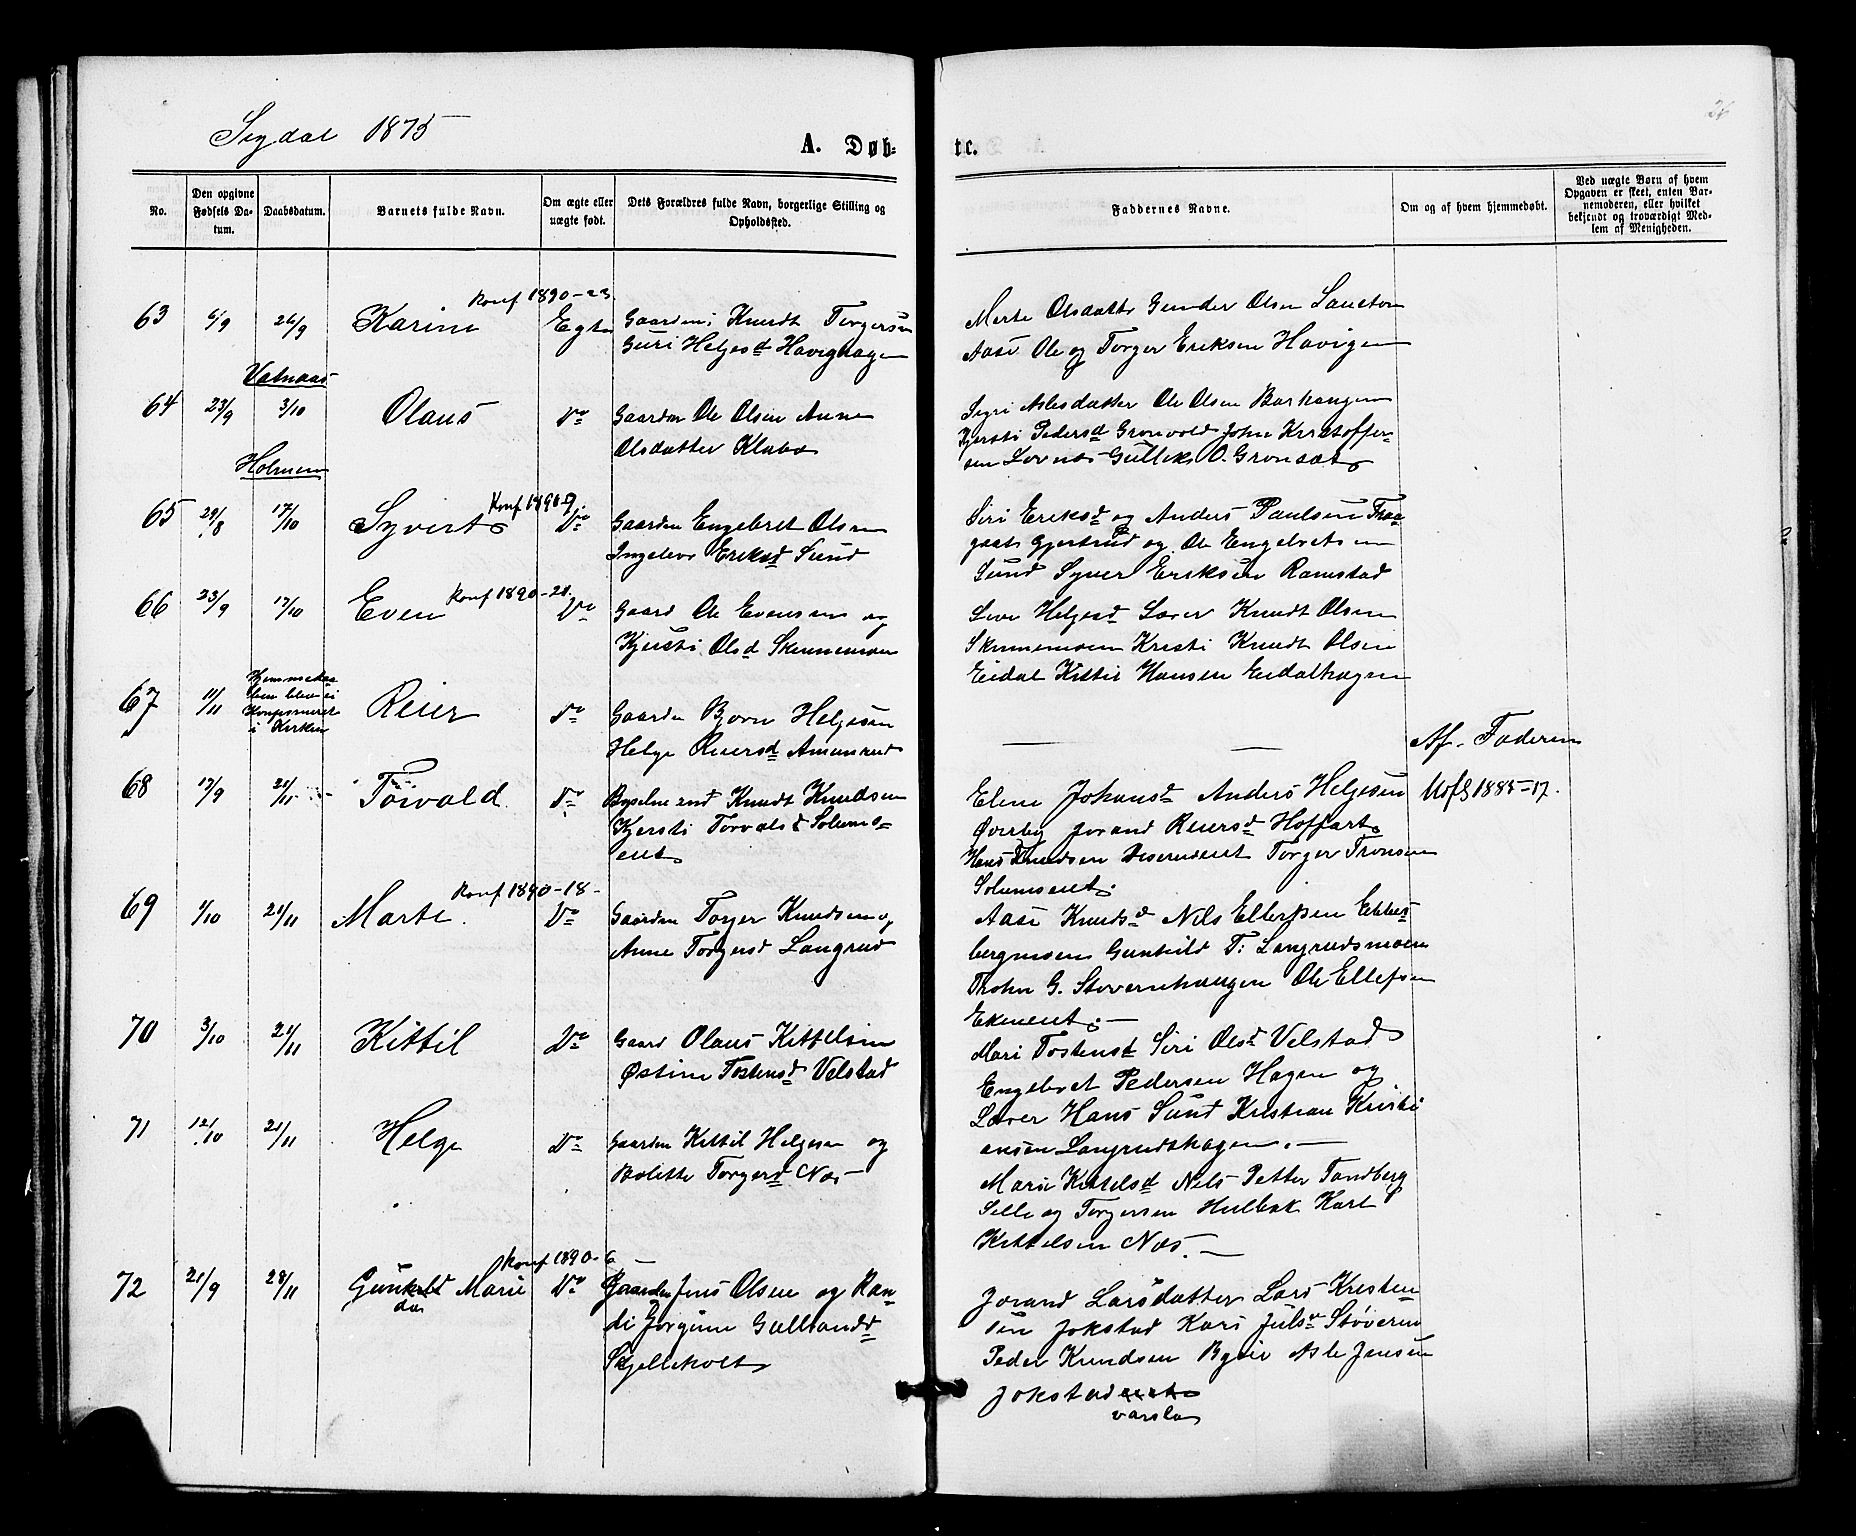 Sigdal 1875
A. Døb-
te.
26
No.
Den opgivne Fødsels Da-tum.
Daabsdatum.
Barnets fulde Navn.
Om ægte eller uægte født.
Dets Forældres fulde Navn, borgerlige Stilling og Opholdssted.
Faddernes Navne.
Om og af hvem hjemmedøbt.
Ved uægte Børn af hvem
Opgaven er skeet, enten Bar-
nemoderen, eller hvilket
bekjendt og troværdigt Med-
lem af Menigheden.
Konf 1890-23.
63 6/9 26/9 Karine Egte Gaardm; Knudt Torgersen
Guri Helgesd Havighagen
Merte Olsdatter Gunder Olsen
Aase Ole og Torger Eriksen Havigen
Vatnaas
64 23/9 3/10 Olaus Do Gaardm Ole Olsen Anne
Olsdatter Klubo
Sigri Aslesdatter Ole Olsen Bakhaugen
Kjersti Pedersd Gronvold John Kristoffer-
sen Lovnes Gulleks O. Gronaat
Holmen
Konf 1890-9.
65 29/8 17/10 Syvert Do Gaardm Engebret Olsen
Ingeleiv Eriksd Sund
Siri Eriksd og Anders Paulsen
Gjertrud og Ole Engebretsen
Sund Syver Eriksen Ramstad
Konf 1890-21.
66 23/9 17/10 Even Do Gaard Ole Evensen og
Kjersti Olsd Skinnemoen
Live Helgesd Laver Knudt Olsen
Skinnemoen Kristi Knudt Olsen
Eidal Kittil Hansen Eidalhagen
67 11/11 Hjemmedaa-
ben blev ei
Konfirmeret
i Kirken
Reier Do Gaardm Bjorn Helgesen
Helge Reiersd Amundrud
Af Faderen
68 17/9 21/11 Torvald Do Knudt Knudsen
Kjersti Torvalsd Solums-
eiet
Elene Johansd Anders Helgesen
Overby Jorand Reiersd Hoffart
Hans Knudsen Torger Tronsen
Solumseiet.
Udfl 1885-17.
Konf 1890-18-
69 1/10 21/11 Marte. Do Gaardm Torger Knudsen og
Anne Torgersd Langrud
Aase Knudsd Nils Ellefsen Ekkes-
bergmoen Gunhild T: Langrudsmoen
Thohn G. Stovernhaugen Ole Ellefsen
Ekeneiet. —
70 3/10 21/11 Kittil Do Gaard Olaus Kittelsen
Østine Tostensd Velstad
Mari Tostensd Siri Olsd Velstad
Engebret Pedersen Hagen og
Laver Hans Sund Kristian Kristi-
ansen Langrudshagen. —
71 12/10 21/11 Helge Do Gaardm Kittil Helgesen og
Bolette Torgersd Næs
Marie Kittelsd Nils Petter Tandberg
Selle og Torgersen Hulbak Karl
Kittelsen Næs. —
Konf 1890-6
72 21/9 28/11 Gunhild Marie Do Gaardm Jens Olsen og Ran-
di Jorgine Gulbrandsd
Skjelleholt
Jorand Larsdatter Lars Kristen-
sen Jokstad Kari Julsd Støveren
Peder Knudsen Byeie Asle Jensen
Jokstad